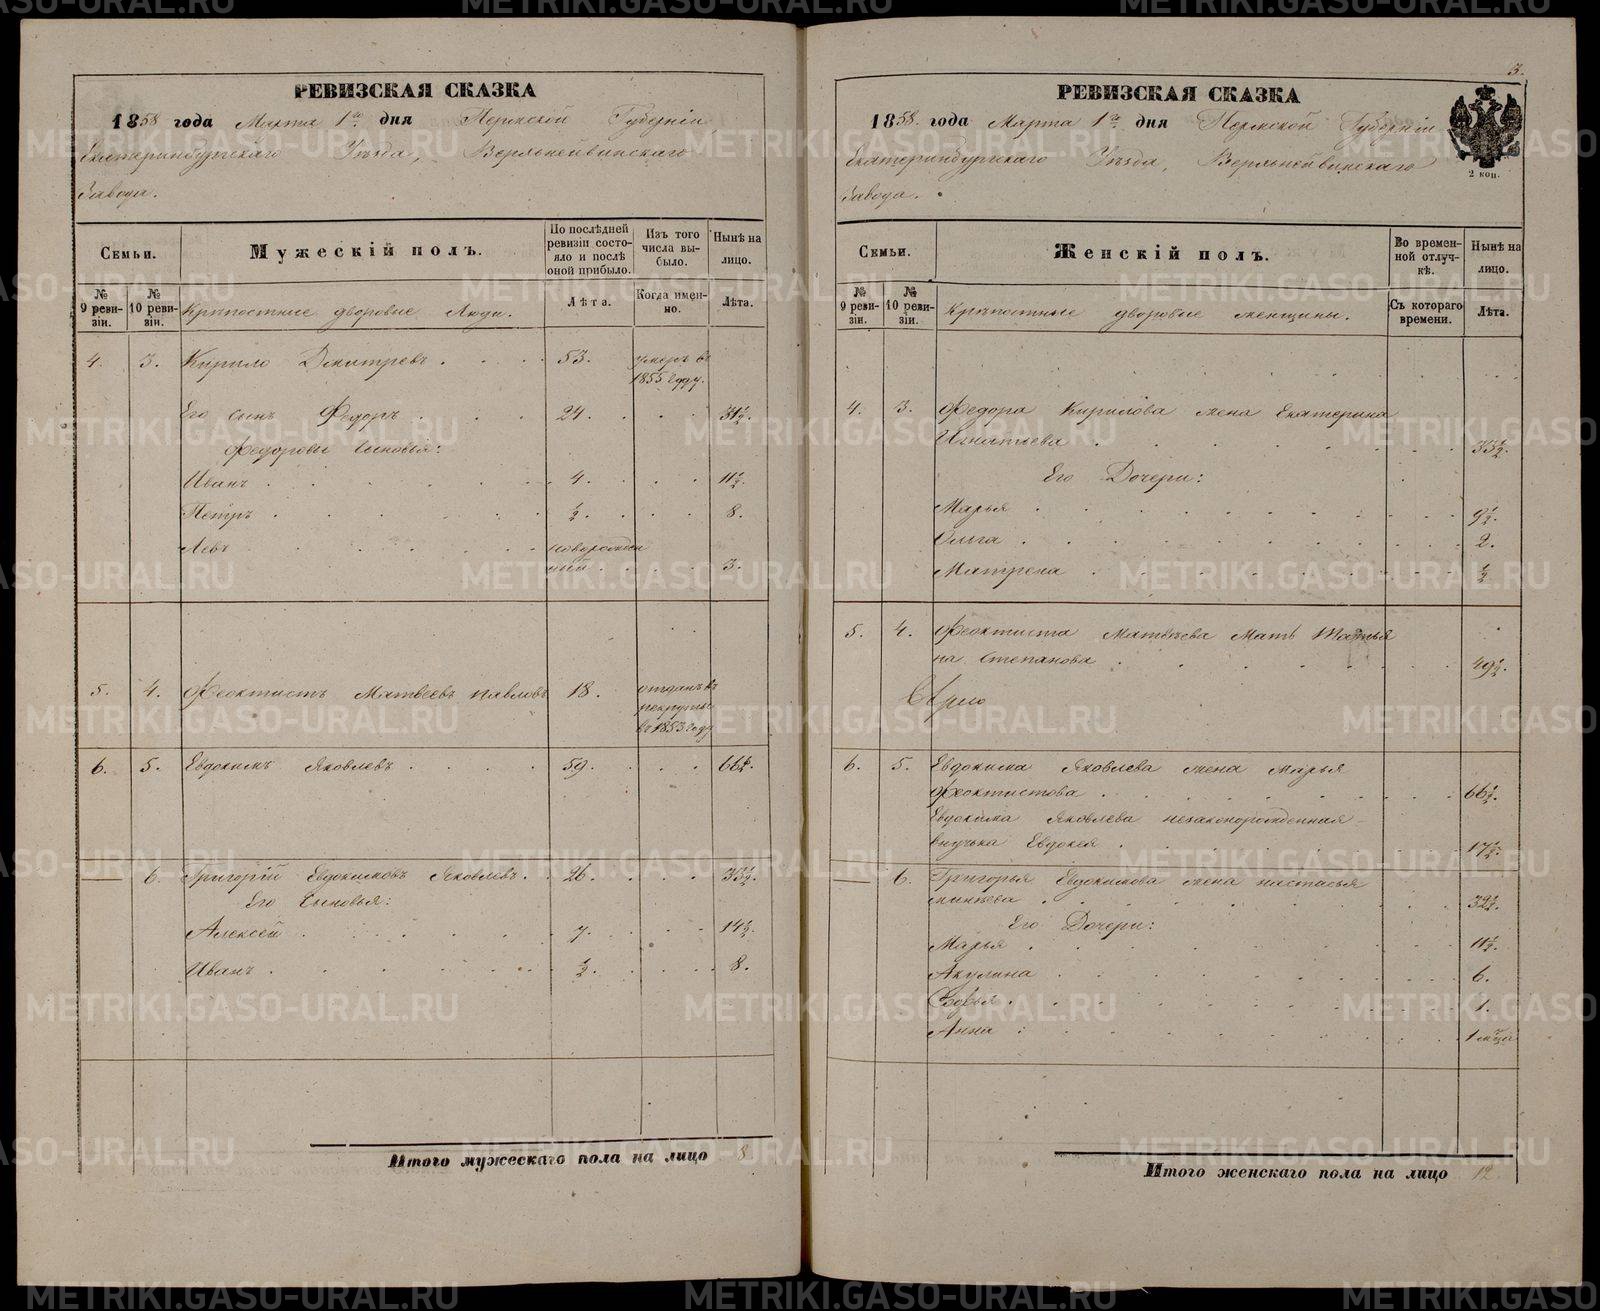 РЕВИЗСКАЯ СКАЗКА
1858 года Марта 1го дня Пермской Губернiи
Екатеринбургскаго Уѣзда, Верхнейвинскаго
Завода.
Семьи.
Мужескiй полъ.
По послѣдней ревизiи состояло и послѣ оной прибыло.
Изъ того числа выбыло.
Нынѣ на лицо.
№ 9 ревизiи.
№ 10 ревизiи.
Крѣпостные дворовые Люди.
Лѣта.
Когда именно.
Лѣта.
4. 3. Кирило Дмитревъ 53. умеръ въ
1855 году.
Его сынъ Федоръ 24. 31½.
Федоровы сыновья:
Иванъ 4. 11½.
Петръ ½. 8.
Левъ новорожден
ный 3.
5. 4. Феоктистъ Матвеевъ Павловъ 18. отданъ въ
рекруты
въ 1853 году
6. 5. Евдокимъ Яковлевъ 59. 66½.
6. Григорiй Евдокимовъ Яковлевъ 26. 33½.
Его Сыновья:
Алексей 7. 14½.
Иванъ ½. 8.
Итого мужескаго пола на лицо 8
3.
РЕВИЗСКАЯ СКАЗКА
1858 года Марта 1го дня Пермской Губернiи
Екатеринбургскаго Уѣзда, Верхнейвинскаго
Завода.
2 коп.
Семьи.
Женскiй полъ.
Во временной отлучкѣ.
Нынѣ на лицо.
№ 9 ревизiи.
№ 10 ревизiи.
Крѣпостные дворовые женщины.
Съ котораго времени.
Лѣта.
4. 3. Федора Кирилова жена Екатерина
Игнатьева 33½.
Его Дочери:
Марья 9½.
Ольга 2.
Матрена ½
5. 4. Феоктиста Матвѣева Мать Татья
на Степанова 49½.
6. 5. Евдокима Яковлева жена Марья
Феоктистова 66½.
Евдокима Яковлева незаконорожденная
внучька Евдокея 17½.
6. Григорья Евдокимова жена Настасья
32½.
Его Дочери:
Марья 11½.
Акулина 6.
1.
Анна 1 мца
Итого женскаго пола на лицо 12
METRIKI.GASO-URAL.RU